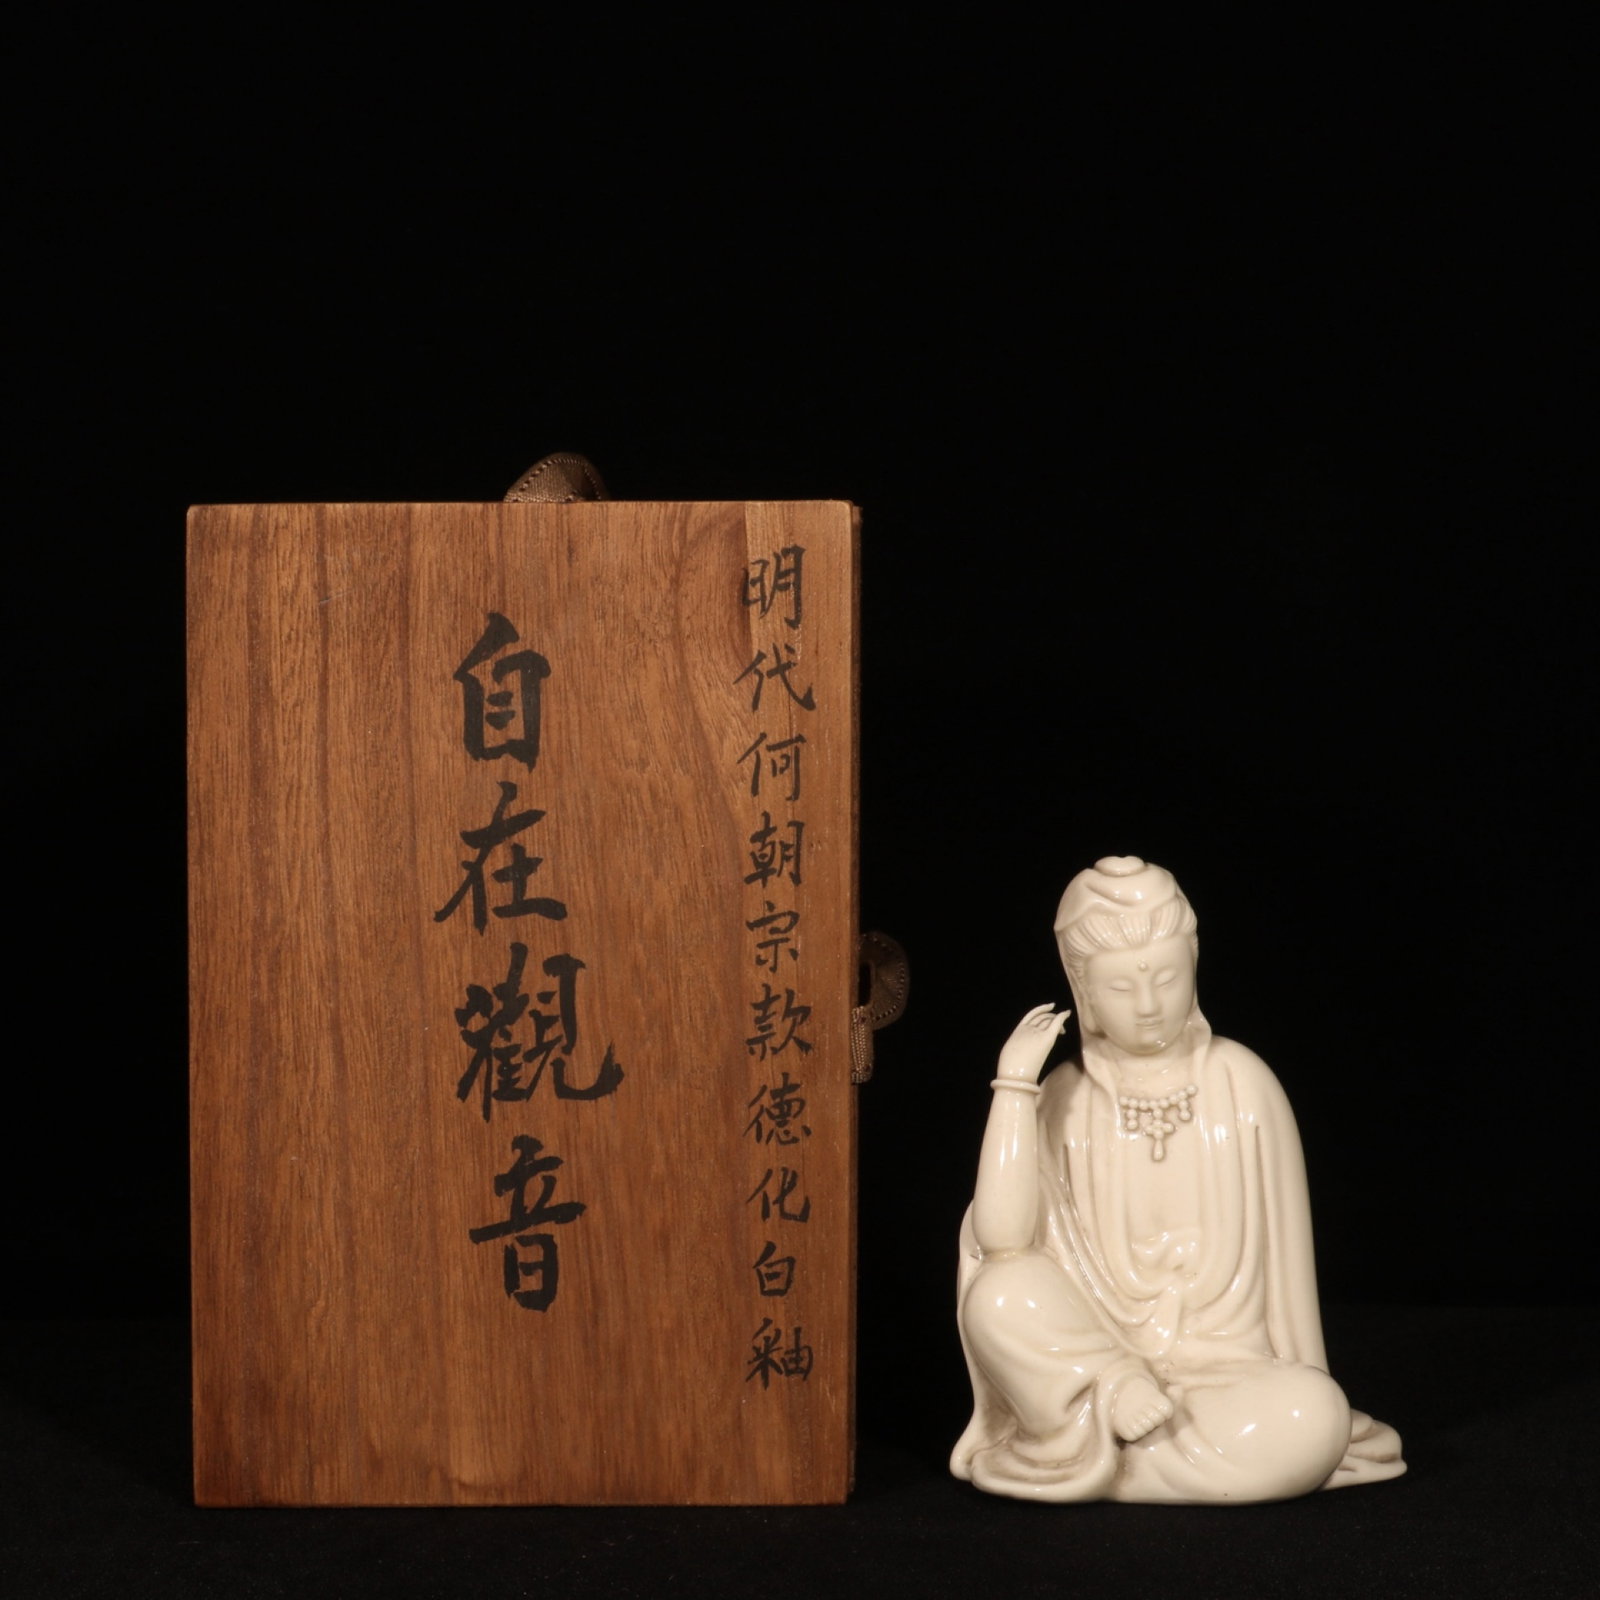 明代何朝宗款德化白釉
自在觀音